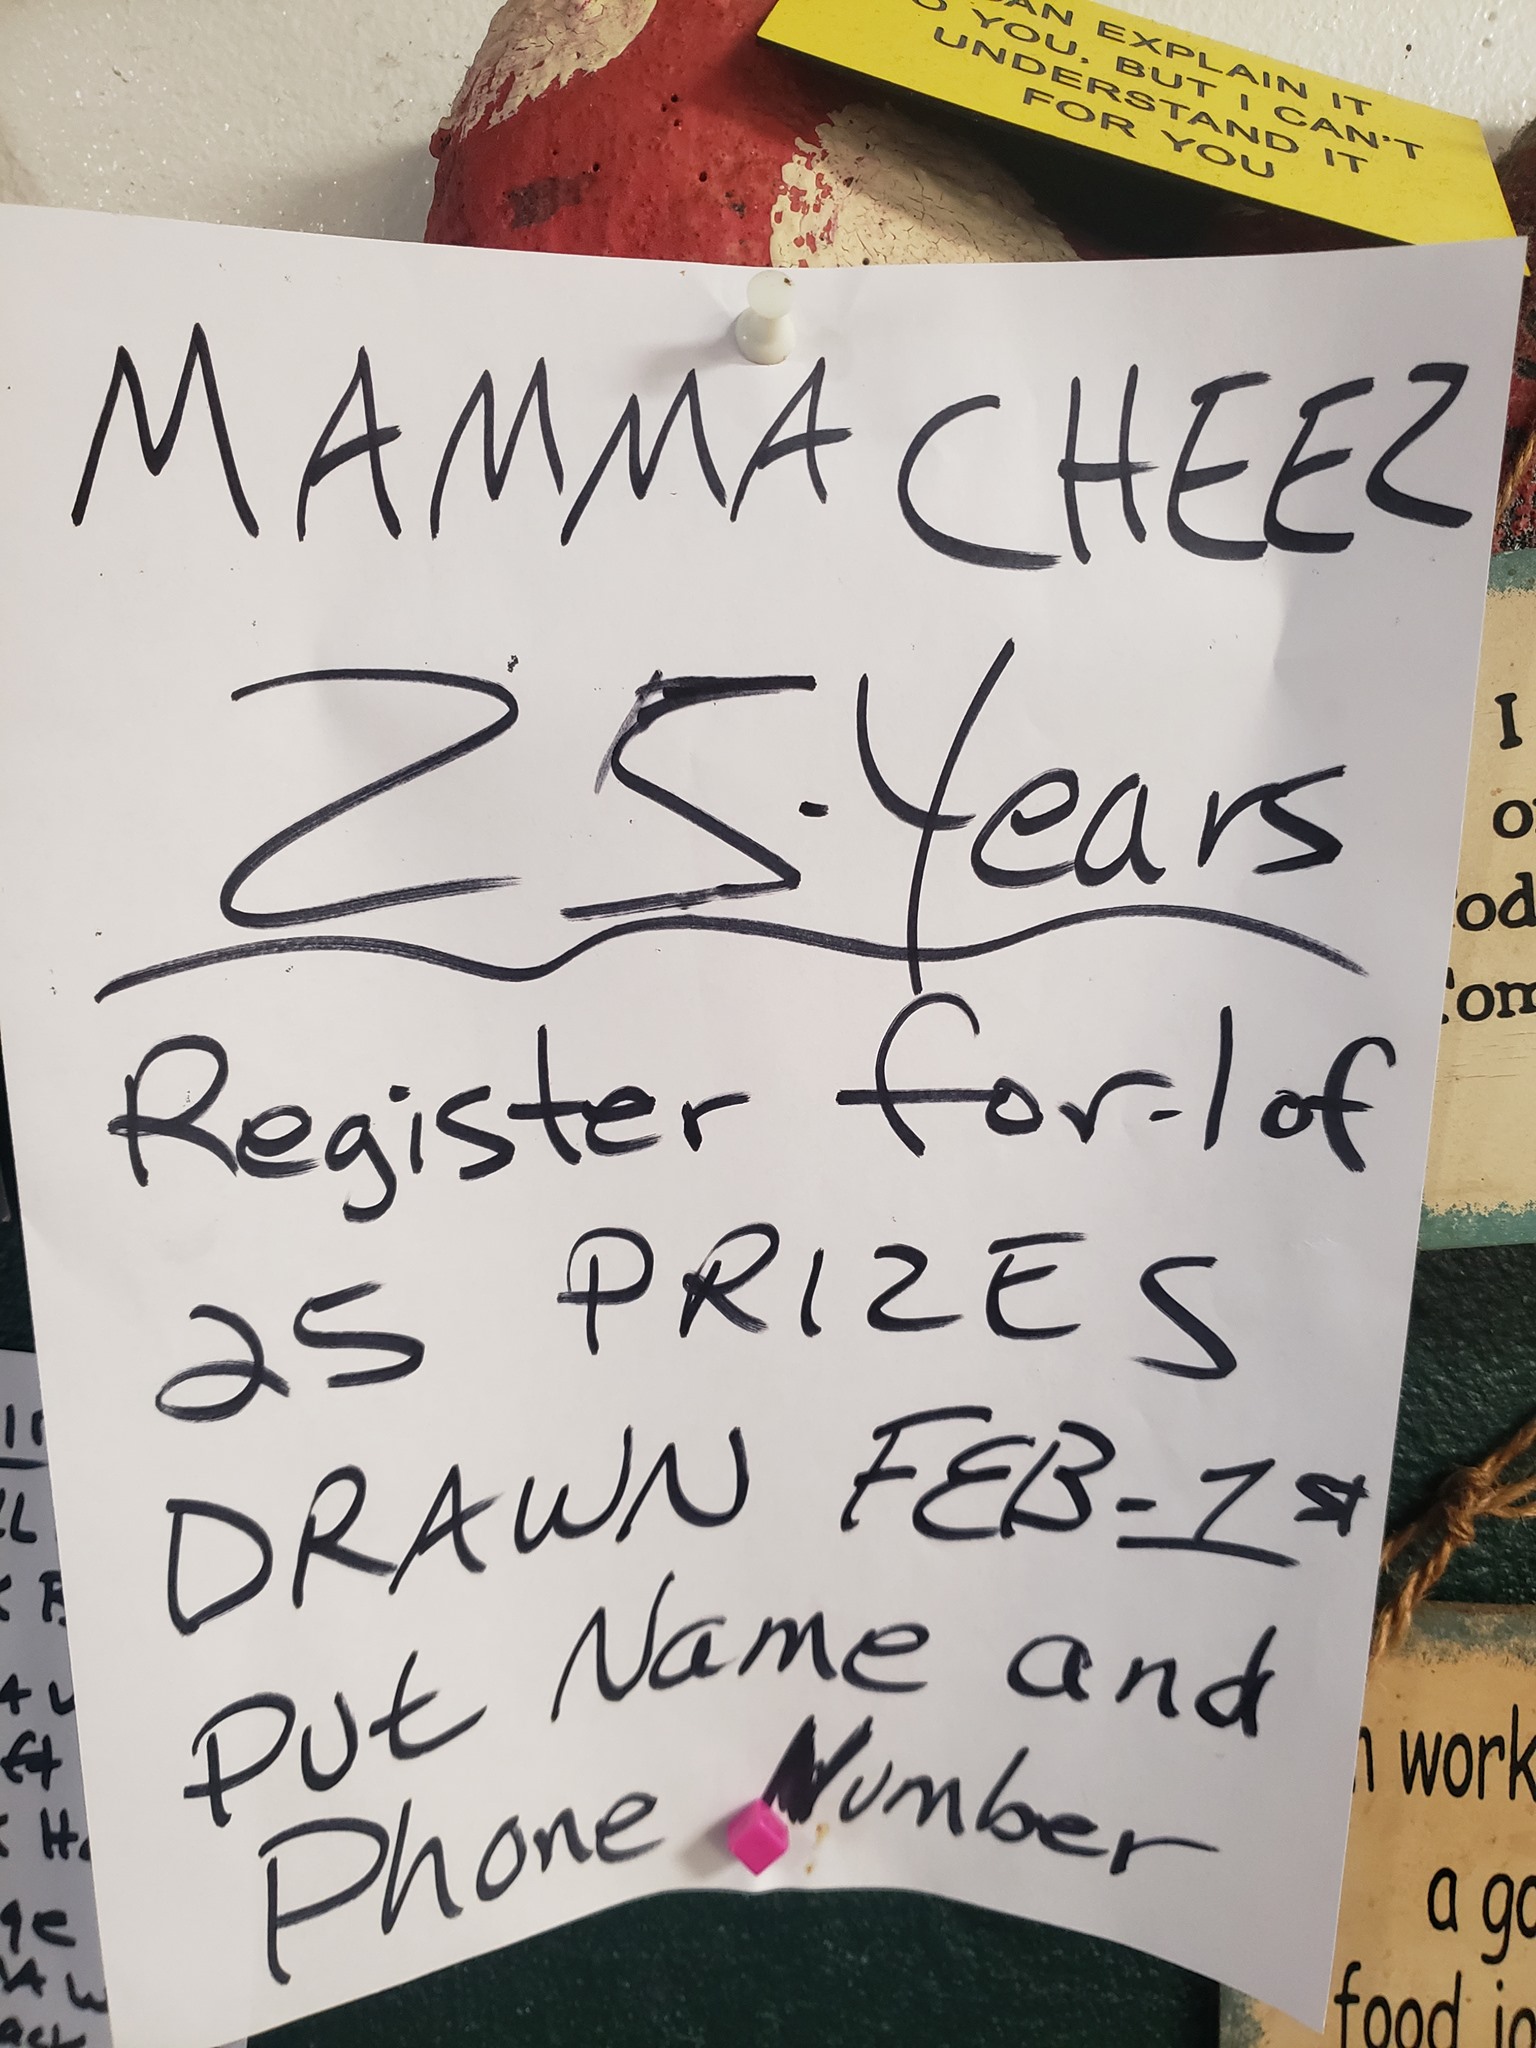 AN EXPLAIN IT
O YOU, BUT I CAN'T
UNDERSTAND IT
FOR YOU
MAMMA CHEEZ
25-Years
Register for-1 of
25 PRIZES
DRAWN FEB-1st
Put Name and
Phone Number
I
work
a go
food in